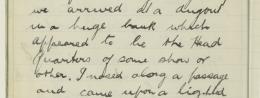 we arrived at a dugout
in a huge bank which
appeared to be the Head
Quarters of some show or
other. I nosed along a passage
and came upon a lighted